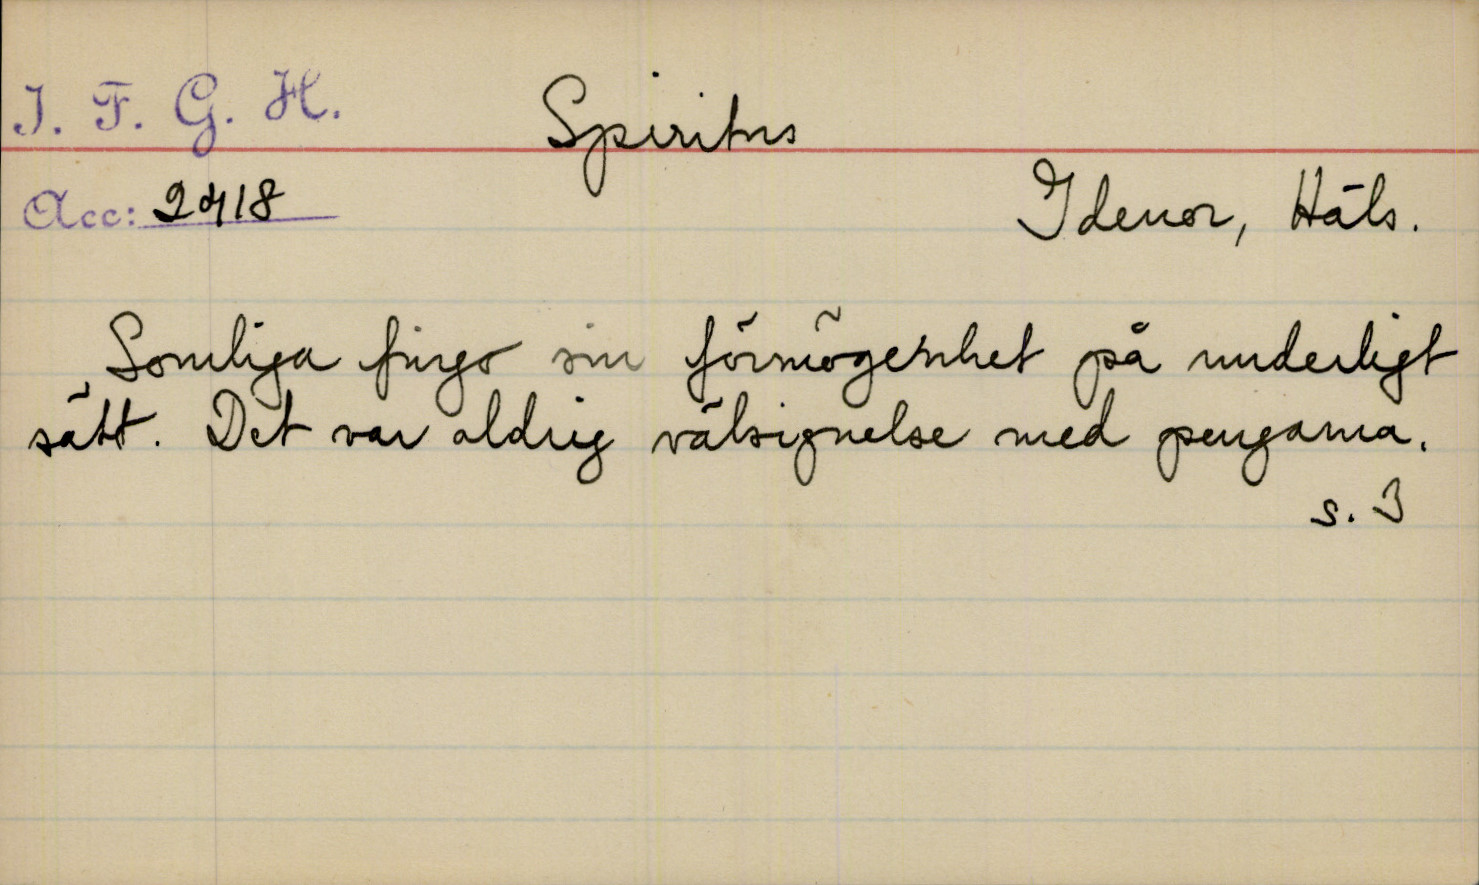 I. F. G. H.
Spiritus
Acc: 2418
Idenor, Häls.
Somliga fingo sin förmögenhet på underligt
sätt. Det var aldrig välsignelse med pengarna.
s. 3